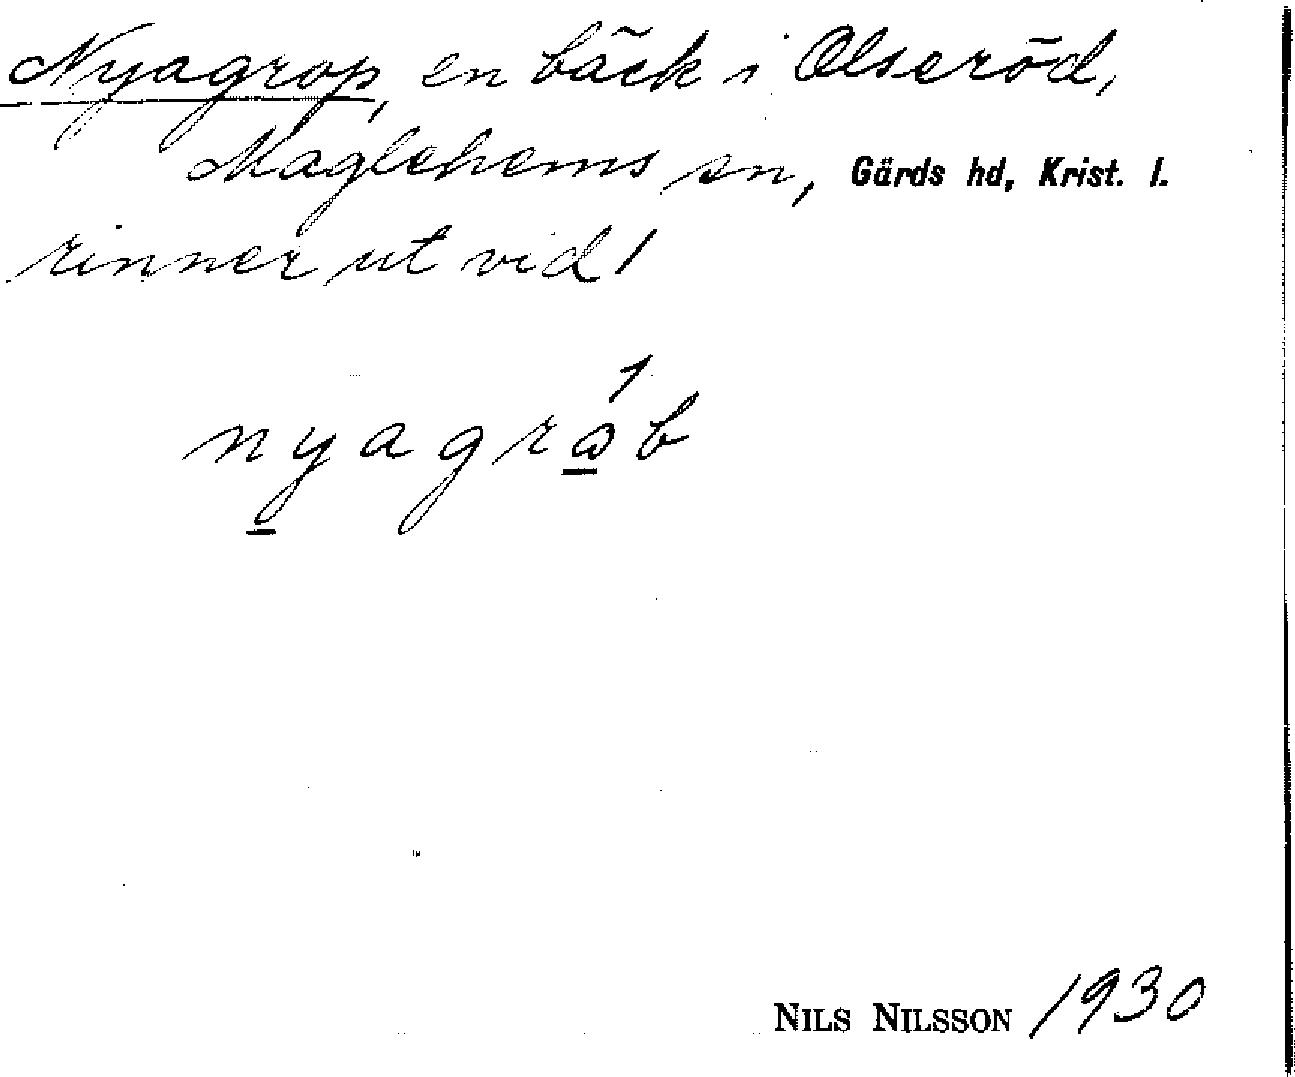 Nyagrop, en bäck i Olseröd,
Maglehems sn, Gärds hd, Krist. l.
rinner ut vid 1
1
nyagråb
NILS NILSSON 1930